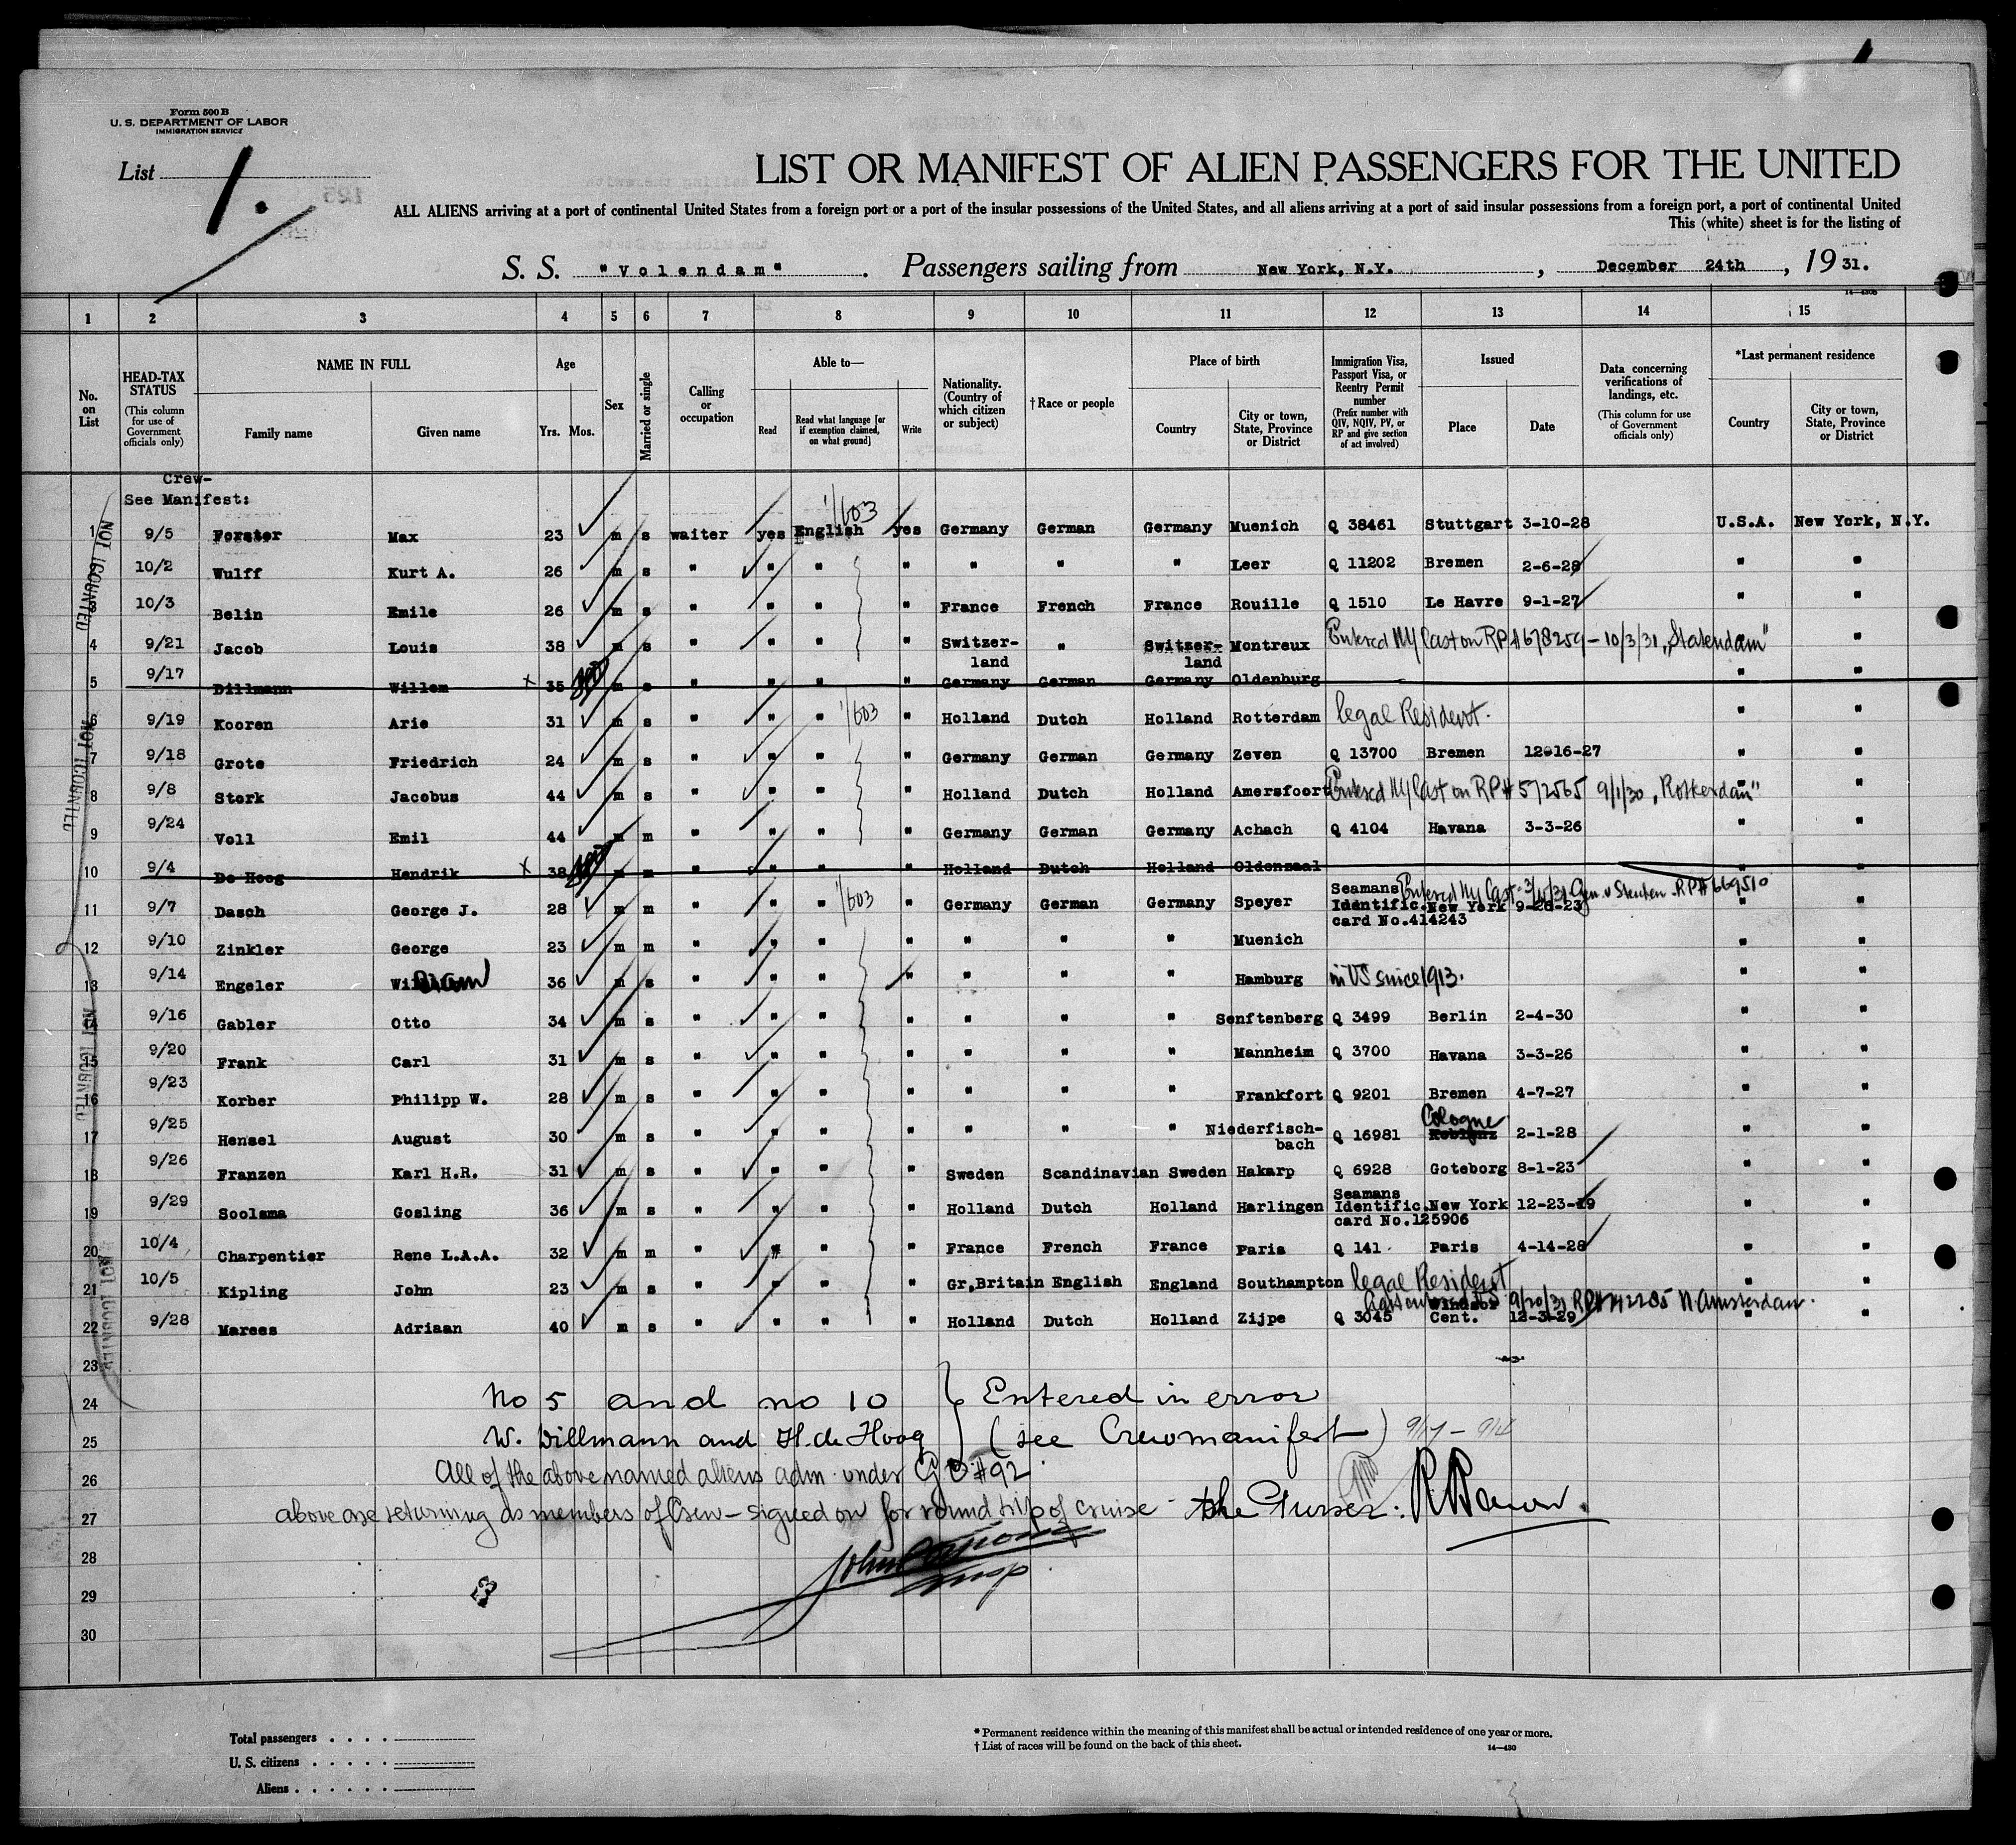 Form 500 B
U. S. DEPARTMENT OF LABOR
IMMIGRATION SERVICE
List 1.
LIST OR MANIFEST OF ALIEN PASSENGERS FOR THE UNITED
ALL ALIENS arriving at a port of continental United States from a foreign port or a port of the insular possessions of the United States, and all aliens arriving at a port of said insular possessions from a foreign port, a port of continental United
This (white) sheet is for the listing of
S. S. "Volendam" . Passengers sailing from New York, N.Y. , December 24th , 19 31.
14—430B
1 2 3 4 5 6 7 8 9 10 11 12 13 14 15
No. on List
HEAD-TAX STATUS
(This column for use of Government officials only)
NAME IN FULL
Family name
Given name
Age
Yrs. Mos.
Sex
Married or single
Calling or occupation
Able to—
Read
Read what language [or if exemption claimed, on what ground]
Write
Nationality. (Country of which citizen or subject)
† Race or people
Place of birth
Country
City or town, State, Province or District
Immigration Visa, Passport Visa, or Reentry Permit number
(Prefix number with QIV, NQIV, PV, or RP and give section of act involved)
Issued
Place
Date
Data concerning verifications of landings, etc.
(This column for use of Government officials only)
*Last permanent residence
Country
City or town, State, Province or District
Crew-
See Manifest:
1 9/5 Forster Max 23 m s waiter yes English yes Germany German Germany Muenich Q 38461 Stuttgart 3-10-28 U.S.A. New York, N.Y.
10/2 Wulff Kurt A. 26 m s " " " " " " " Leer Q 11202 Bremen 2-6-28 " "
3 10/3 Belin Emile 26 m s " " " " France French France Rouille Q 1510 Le Havre 9-1-27 " "
4 9/21 Jacob Louis 38 m s " " " " Switzer-land " Switzer-land Montreux Entered NY last on RP#678259 - 10/3/31 "Statendam" "
5 9/17 Dillmann Willem x 35 m s " " " " Germany German Germany Oldenburg " "
6 9/19 Kooren Arie 31 m s " " " " Holland Dutch Holland Rotterdam legal Resident. " "
7 9/18 Grote Friedrich 24 m s " " " " Germany German Germany Zeven Q 13700 Bremen 12-16-27 " "
8 9/8 Stork Jacobus 44 m s " " " " Holland Dutch Holland Amersfoort Entered NY last on RP# 572565 9/1/30 "Rotterdam" "
9 9/24 Voll Emil 44 m m " " " Germany German Germany Achach Q 4104 Havana 3-3-26 " "
10 9/4 De Hoog Hendrik x 38 m m " " " " Holland Dutch Holland Oldenzaal " "
11 9/7 Dasch George J. 28 m m " " " " Germany German Germany Speyer Seamans Identific. card No.414243 New York 9-28-23 Entered NY last RP# 669510 " "
12 9/10 Zinkler George 23 m m " " " " " " " Muenich " "
13 9/14 Engeler William 36 m s " " " " " " " Hamburg in US since 1913. " "
14 9/16 Gabler Otto 34 m s " " " " " " " Senftenberg Q 3499 Berlin 2-4-30 " "
15 9/20 Frank Carl 31 m s " " " " " " " Mannheim Q 3700 Havana 3-3-26 " "
16 9/23 Korber Philipp W. 28 m s " " " " " " " Frankfort Q 9201 Bremen 4-7-27 " "
17 9/25 Hensel August 30 m s " " " " " " " Niederfisch-bach Q 16981 Koblenz Cologne 2-1-28 " "
18 9/26 Franzen Karl H.R. 31 m s " " " " Sweden Scandinavian Sweden Hakarp Q 6928 Goteborg 8-1-23 " "
19 9/29 Soolsma Gosling 36 m s " " " " Holland Dutch Holland Harlingen Seamans Identific. card No.125906 New York 12-23-19 " "
20 10/4 Charpentier Rene L.A.A. 32 m m " " " " France French France Paris Q 141 Paris 4-14-28 " "
21 10/5 Kipling John 23 m s " " " " Gr.Britain English England Southampton legal Resident " "
22 9/28 Marees Adriaan 40 m s " " " " Holland Dutch Holland Zijpe Q 3045 Windsor Cent. 12-3-29 9/20/31 N. Amsterdam. " "
23
24 No 5 and no 10 } Entered in error
25 W. Dillmann and H. de Hoog } (see Crewmanifest) 9/17 - 9/4
26 All of the above named aliens adm. under GO #92
27 above are returning as members of Crew - signed on for round trip of cruise - the Purser.
28
29
30
Insp
NOT COUNTED
NOT COUNTED
NOT COUNTED
NOT COUNTED
Total passengers
U. S. citizens
Aliens
* Permanent residence within the meaning of this manifest shall be actual or intended residence of one year or more.
† List of races will be found on the back of this sheet.
14—430